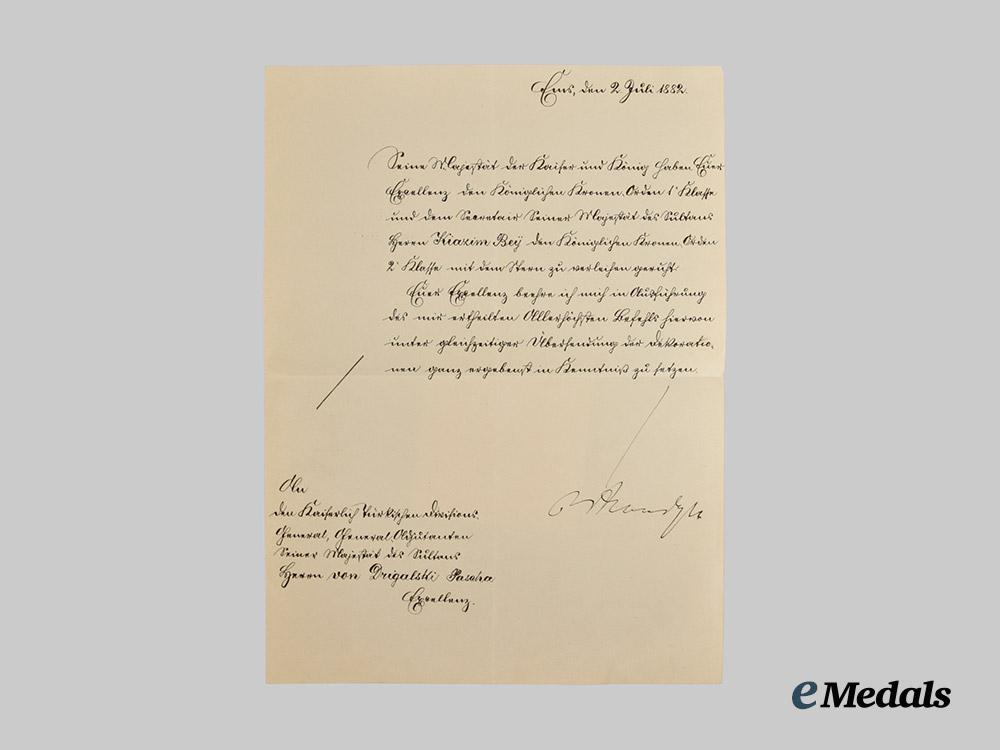 Ems, den 2 Juli 1882.
Seine Majestät der Kaiser und König haben Euer
Excellenz den Königlichen Kronen-Orden 1r Klasse
und dem Secretair Seiner Majestät des Sultans
Herrn Kiazim Bey den Königlichen Kronen-Orden
2r Klasse mit dem Stern zu verleihen geruht.
Euer Excellenz beehre ich mich in Ausführung
des mir ertheilten Allerhöchsten Befehls hiervon
unter gleichzeitiger Übersendung der Dekoratio-
nen ganz ergebenst in Kenntniß zu setzen.
An
den Kaiserlich Türkischen Divisions-
General, General Adjutanten
Seiner Majestät des Sultans
Herrn von Drigalski Pascha
Excellenz.
eMedals